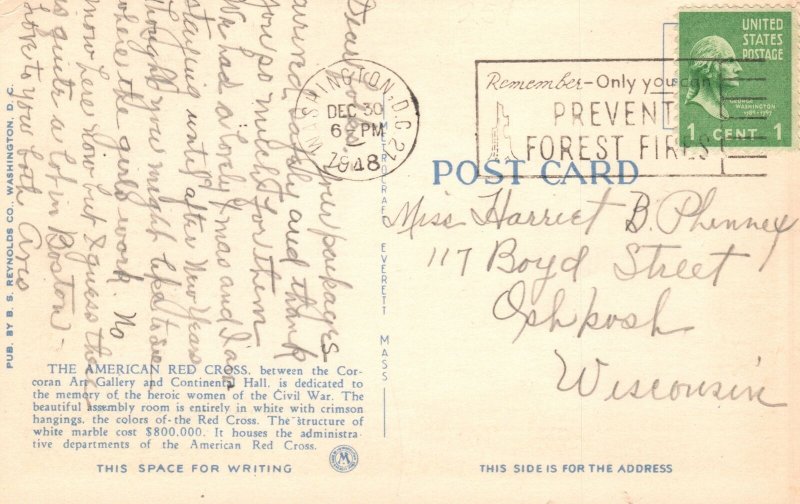 Your packages
arrived safely and thank
you so much for them
We had a lovely Xmas and I am
staying until after New Years
Thought you might like to see
where the girls work. No
snow here now but I guess there
is quite a lot in Boston -
Love to you both
WASHINGTON, D.C. 21
DEC 30
6 PM
1948
Remember-Only you can
PREVENT
FOREST FIRES
UNITED
STATES
POSTAGE
GEORGE
WASHINGTON
1 CENT 1
POST CARD
Miss Harriet B. Phenney
117 Boyd Street
Oshkosh
Wisconsin
PUB. BY B. S. REYNOLDS CO., WASHINGTON, D. C.
METROCRAFT EVERETT MASS
THE AMERICAN RED CROSS, between the Cor-
coran Art Gallery and Continental Hall, is dedicated to
the memory of the heroic women of the Civil War. The
beautiful assembly room is entirely in white with crimson
hangings, the colors of the Red Cross. The structure of
white marble cost $800,000. It houses the administra-
tive departments of the American Red Cross.
THIS SPACE FOR WRITING
M
THIS SIDE IS FOR THE ADDRESS